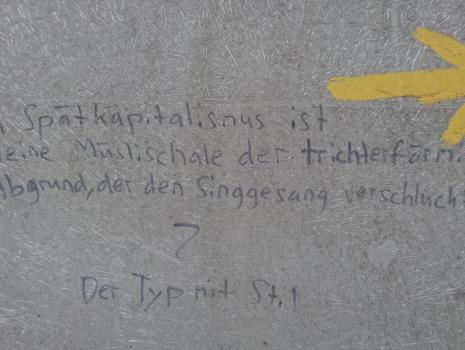 Spätkapitalismus ist
eine Müslischale der trichterförmi
bgrund, der den Singgesang verschluck
?
Der Typ mit Stil